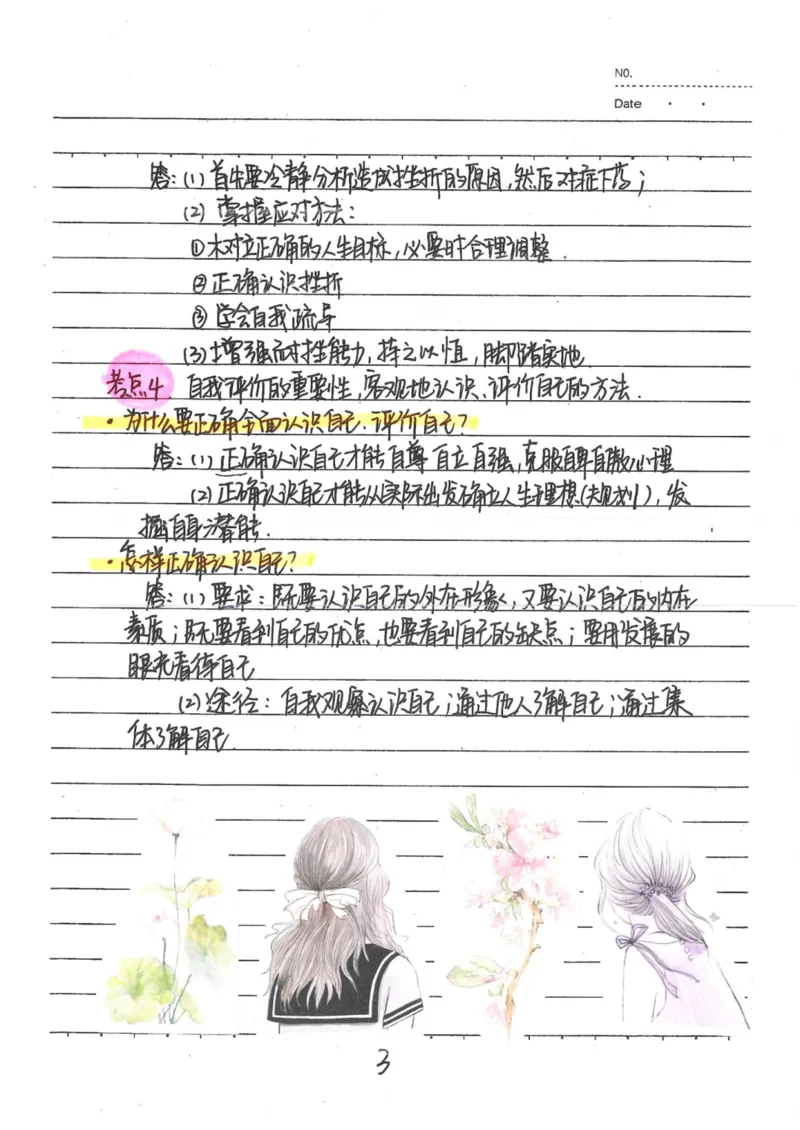 NO.
Date
答：(1) 首先要冷静分析造成挫折的原因，然后对症下药；
(2) 掌握应对方法：
①树立正确的人生目标，必要时合理调整.
②正确认识挫折
③ 学会自我疏导
(3) 增强耐挫能力，持之以恒，脚踏实地.
考点4. 自我评价的重要性，客观地认识、评价自己的方法.
·为什么要正确全面认识自己、评价自己？
答：(1) 正确认识自己才能自尊自立自强，克服自卑自傲心理
(2) 正确认识自己才能从实际出发确立人生理想(规划)，发
掘自身潜能.
·怎样正确认识自己？
答：(1) 要求：既要认识自己的外在形象，又要认识自己的内在
素质；既要看到自己的优点，也要看到自己的缺点；要用发展的
眼光看待自己
(2) 途径：自我观察认识自己；通过他人了解自己；通过集
体了解自己.
3